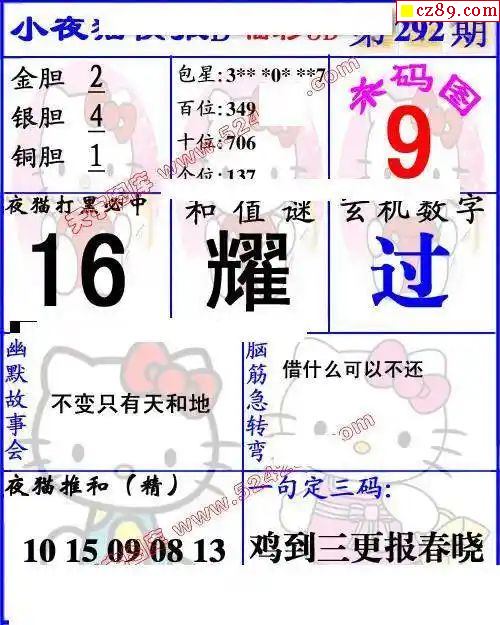 cz89.com
小夜猫
第292期
金胆 2
银胆 4
铜胆 1
包星:3** *0* **7
百位:349
十位:706
个位:137
杀码图
9
夜猫打黑必中
16
和值谜
耀
玄机数字
过
幽默故事会
不变只有天和地
脑筋急转弯
借什么可以不还
夜猫推和（精）
10 15 09 08 13
一句定三码:
鸡到三更报春晓